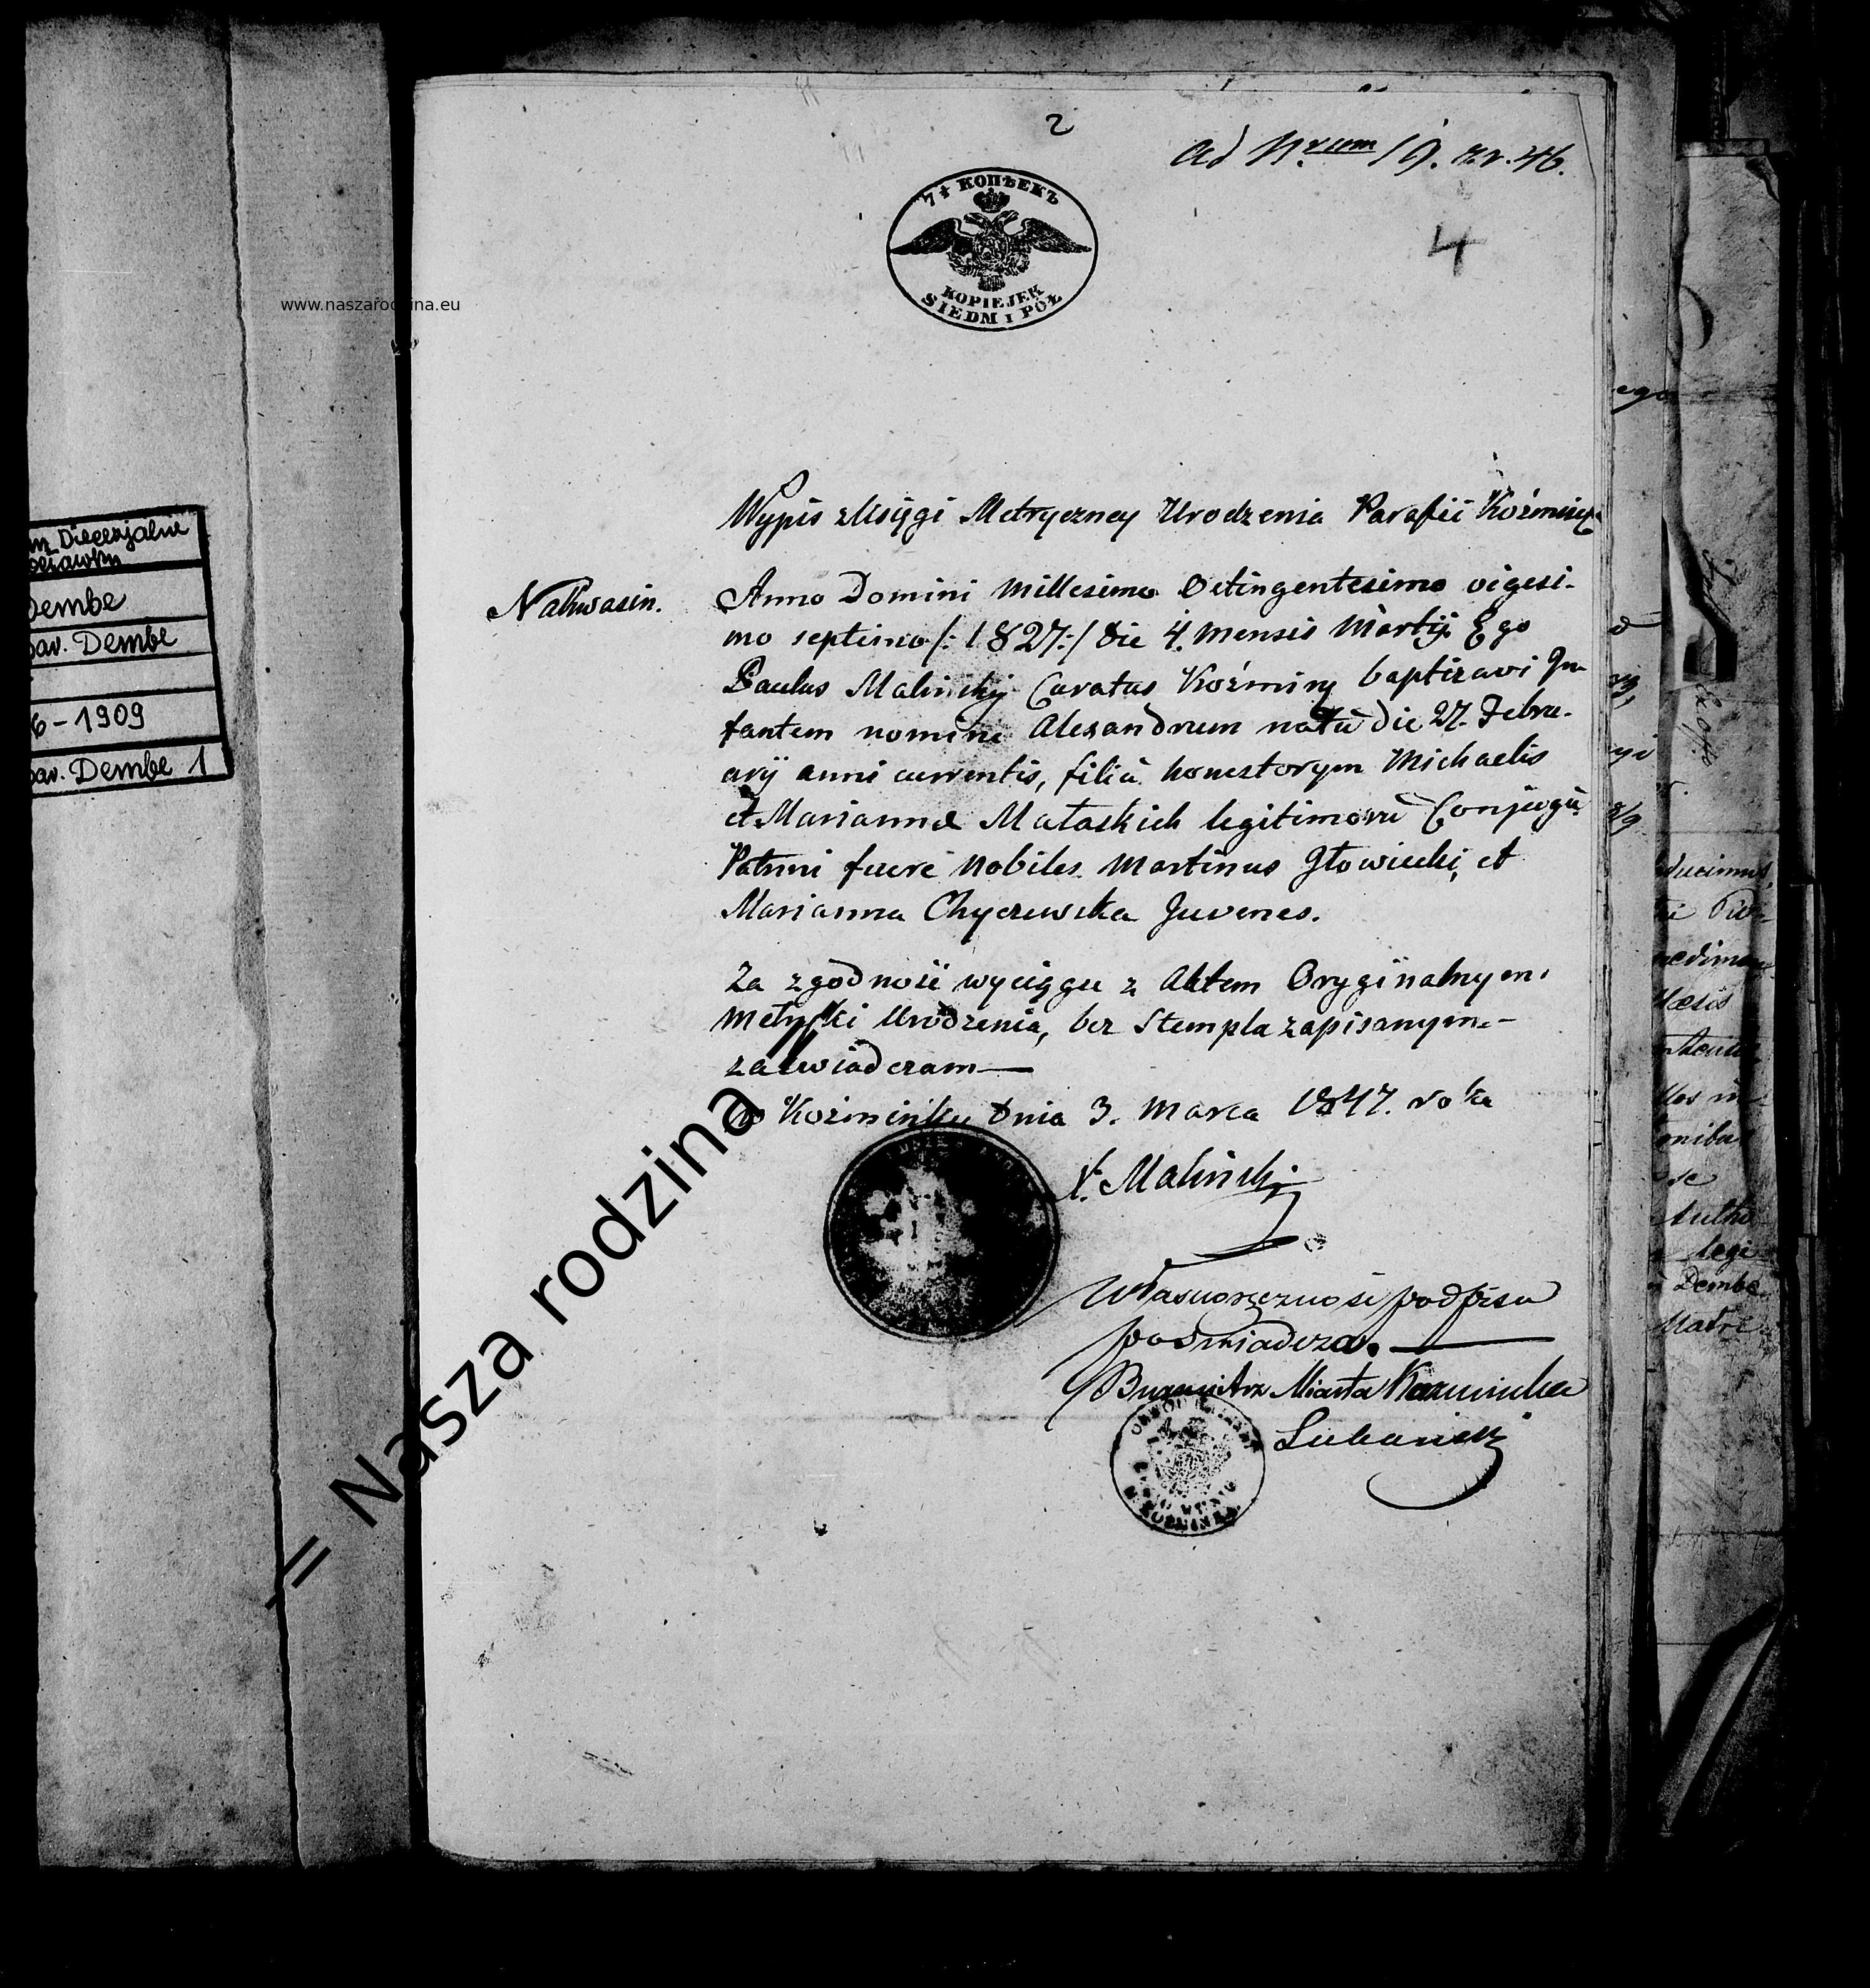 2
ad Nrum 19. zr. 46.
7½ КОПѢЕКЪ
KOPIEJEK
SIEDM i PÓŁ
4
www.naszarodzina.eu
Wypis z Księgi Metryczney Urodzenia Parafii Koźminek
Nakwasin.
Anno Domini Millesimo Octingentesimo vigesi-
mo septimo /: 1827:/ die 4. mensis Martij Ego
Paulus Malinskij Curatus Koźminę baptizavi In-
fantem nomine Alexandrum natũ die 27. Febru-
arij anni currentis, filiũ honestorym Michaelis
et Mariannæ Mataskich legitimorũ Conjugũ
Patrini fuere Nobiles Martinus Głowiecki, et
Marianna Chyczewska Juvenes.
Za zgodność wyciągu z Aktem Oryginalnym
Metryki Urodzenia, bez Stempla zapisanym
zaświadczam
w Koźminku Dnia 3. Marca 1847. roku
X. Malinski
Własnoręczność podpisu
poświadcza.
Burmistrz Miasta Kozminka
Nasza rodzina
Dembe
par. Dembe
6-1909
par. Dembe 1